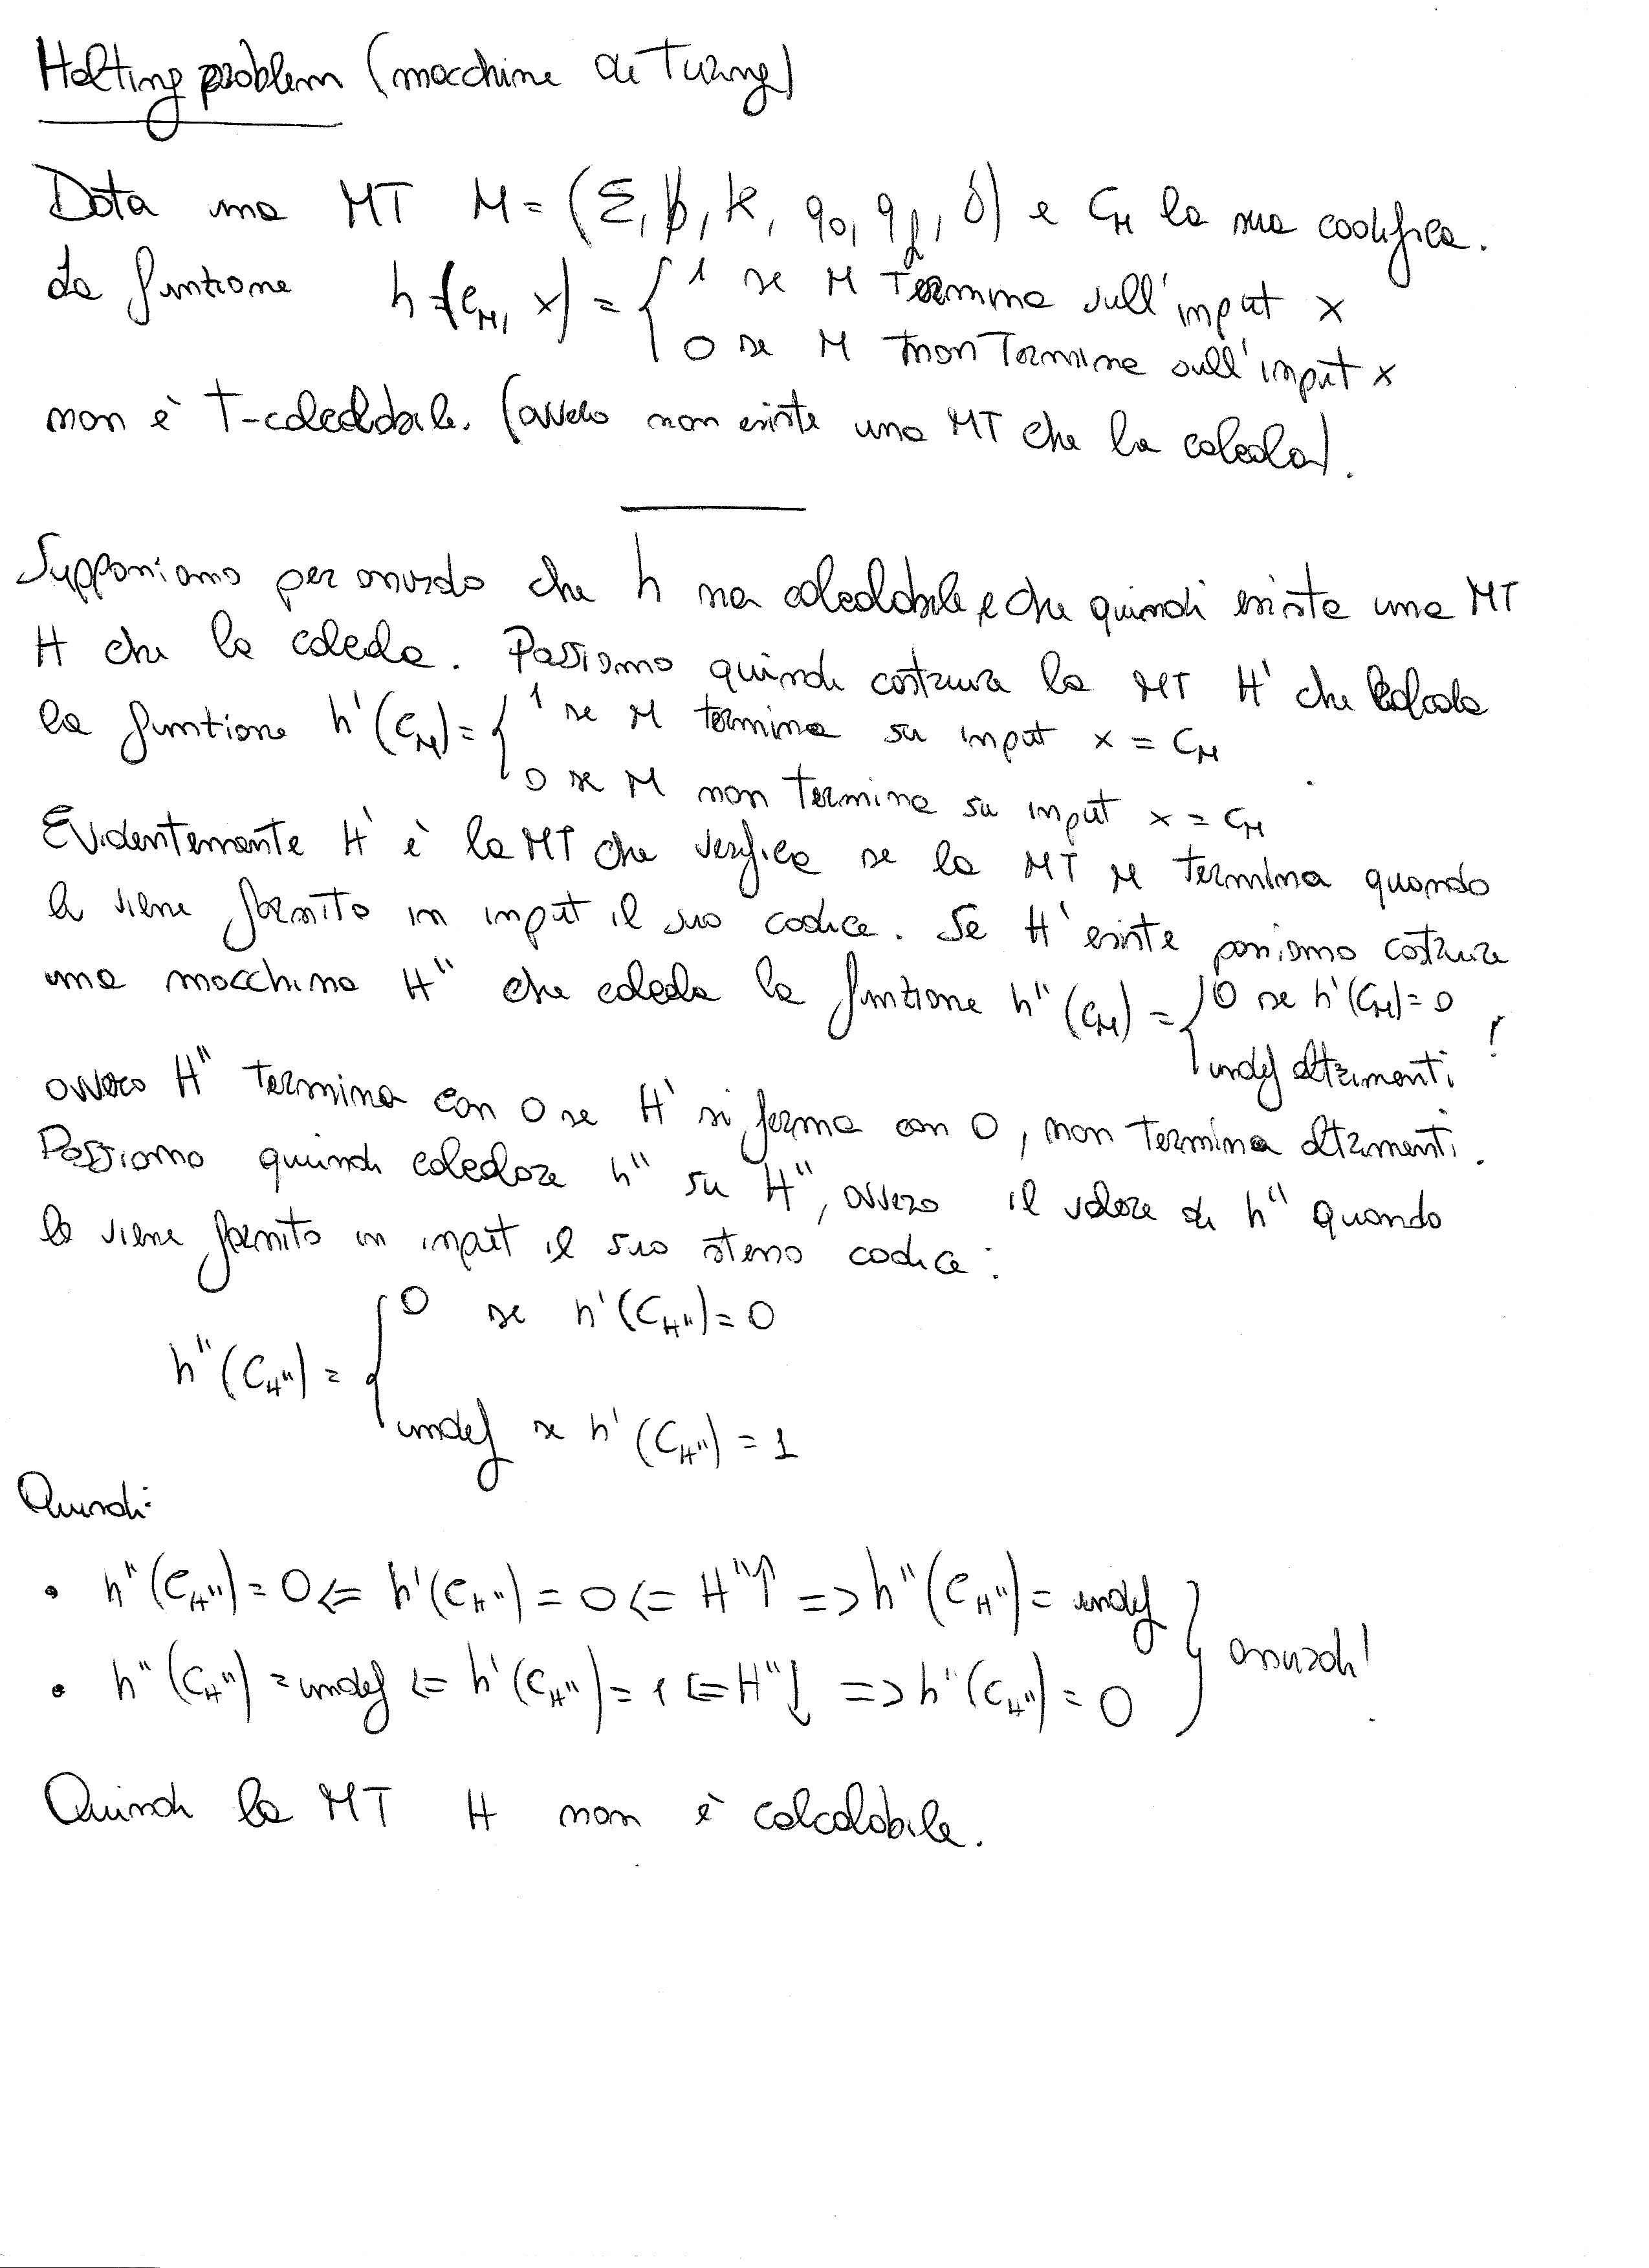 Halting problem (macchine di Turing)
Data una MT M = (Σ, ƀ, K, q₀, q_f, δ) e C_M la sua codifica.
La funzione h(C_M, x) = { 1 se M termina sull'input x
0 se M non termina sull'input x
non è T-calcolabile. (ovvero non esiste una MT che la calcola).
Supponiamo per assurdo che h sia calcolabile e che quindi esiste una MT
H che la calcola. Possiamo quindi costruire la MT H' che calcola
la funzione h'(C_M) = { 1 se M termina su input x = C_M
0 se M non termina su input x = C_M
Evidentemente H' è la MT che verifica se la MT M termina quando
le viene fornito in input il suo codice. Se H' esiste possiamo costruire
una macchina H'' che calcola la funzione h''(C_M) = { 0 se h'(C_M) = 0
undef altrimenti !
ovvero H'' termina con 0 se H' si ferma con 0, non termina altrimenti.
Possiamo quindi calcolare h'' su H'', ovvero il valore di h'' quando
le viene fornito in input il suo stesso codice:
h''(C_H'') = { 0 se h'(C_H'') = 0
undef se h'(C_H'') = 1
Quindi:
• h''(C_H'') = 0 <= h'(C_H'') = 0 <= H''↑ => h''(C_H'') = undef
• h''(C_H'') = undef <= h'(C_H'') = 1 <= H''↓ => h''(C_H'') = 0 } assurdi!
Quindi la MT H non è calcolabile.